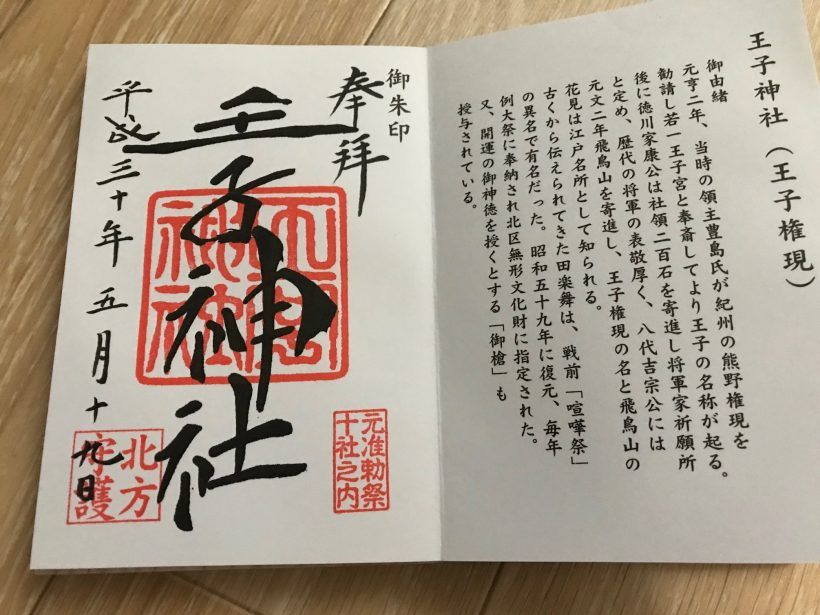 王子神社(王子権現)
御由緒
元亨二年、当時の領主豊島氏が紀州の熊野権現を
勧請し若一王子宮と奉斎してより王子の名称が起る。
後に徳川家康公は社領二百石を寄進し将軍家祈願所
と定め、歴代の将軍の表敬厚く、八代吉宗公には
元文二年飛鳥山を寄進し、王子権現の名と飛鳥山の
花見は江戸名所として知られる。
古くから伝えられてきた田楽舞は、戦前「喧嘩祭」
の異名で有名だった。昭和五十九年に復元、毎年
例大祭に奉納され北区無形文化財に指定された。
又、開運の御神徳を授くとする「御槍」も
授与されている。
御朱印
奉拝
元准勅祭
十社之内
王子神社
北方
守護
平成三十年五月十九日